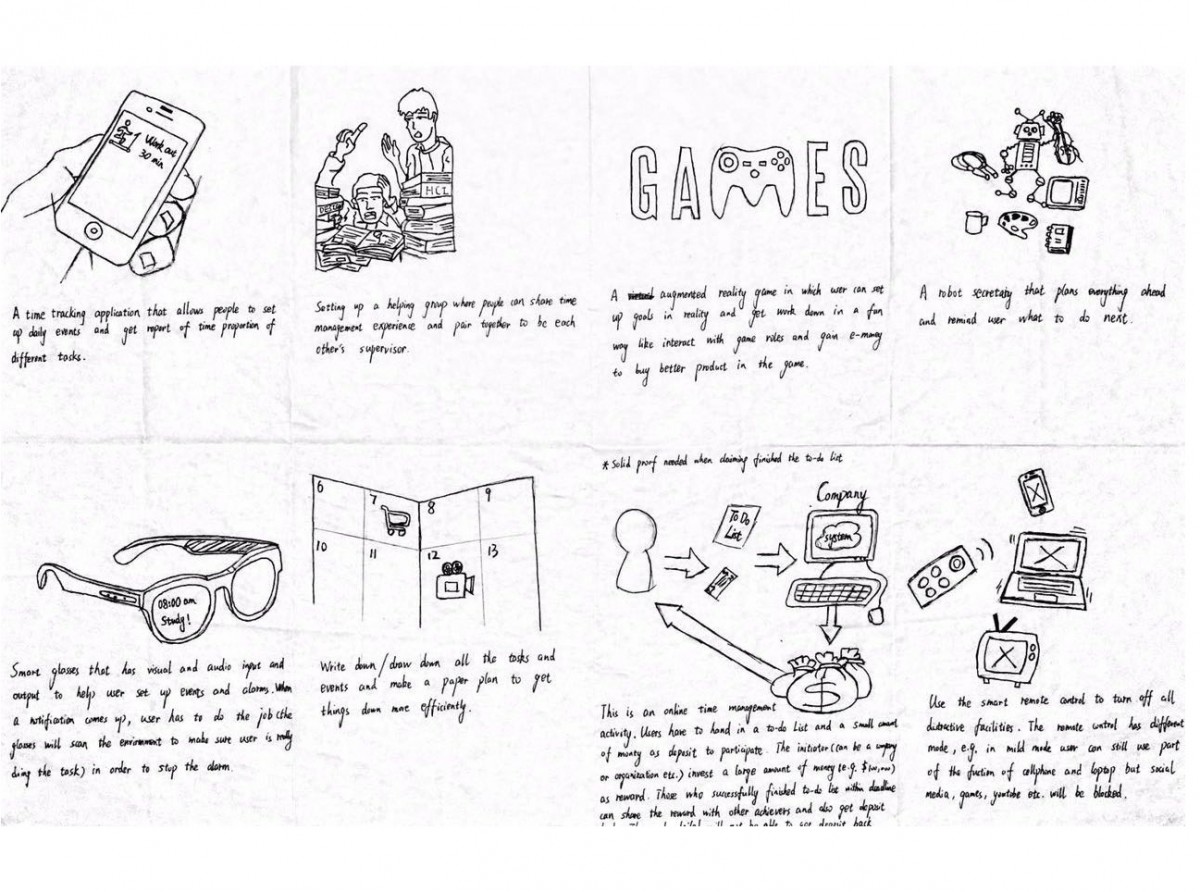 Work out
30 min
A time tracking application that allows people to set
up daily events and get report of time proportion of
different tasks.
HCI
Setting up a helping group where people can share time
management experience and pair together to be each
other's supervisor.
GAMES
A virtual augmented reality game in which user can set
up goals in reality and get work down in a fun
way like interact with game roles and gain e-money
to buy better product in the game.
A robot secretary that plans everything ahead
and remind user what to do next.
08:00 am
Study!
Smart glasses that has visual and audio input and
output to help user set up events and alarms. When
a notification comes up, user has to do the job (the
glasses will scan the environment to make sure user is really
ding the task) in order to stop the alarm.
6 7 8 9
10 11 12 13
Write down/draw down all the tasks and
events and make a paper plan to get
things down more efficiently.
* Solid proof needed when claiming finished the to-do list
To Do
List
Company
system
$
This is an online time management
activity. Users have to hand in a to-do List and a small amount
of money as deposit to participate. The initiator (can be a company
or organization etc.) invest a large amount of money (e.g.
as reward. Those who successfully finished to-do list within deadline
can share the reward with other achievers and also get deposit
be able to get deposit back
Use the smart remote control to turn off all
distractive facilities. The remote control has different
mode, e.g. in mild mode user can still use part
of the fuction of cellphone and laptop but social
media, games, youtube etc. will be blocked.